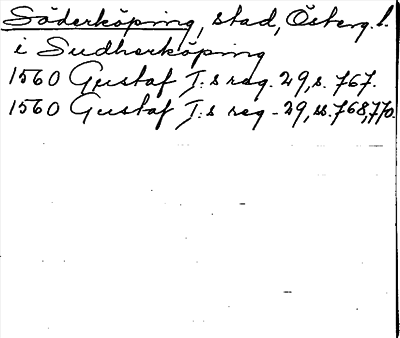 Söderköping, stad, Österg. l.
i Sudherköping
1560 Gustaf I:s reg. 29, s. 767.
1560 Gustaf I:s reg - 29, ss. 768, 770.